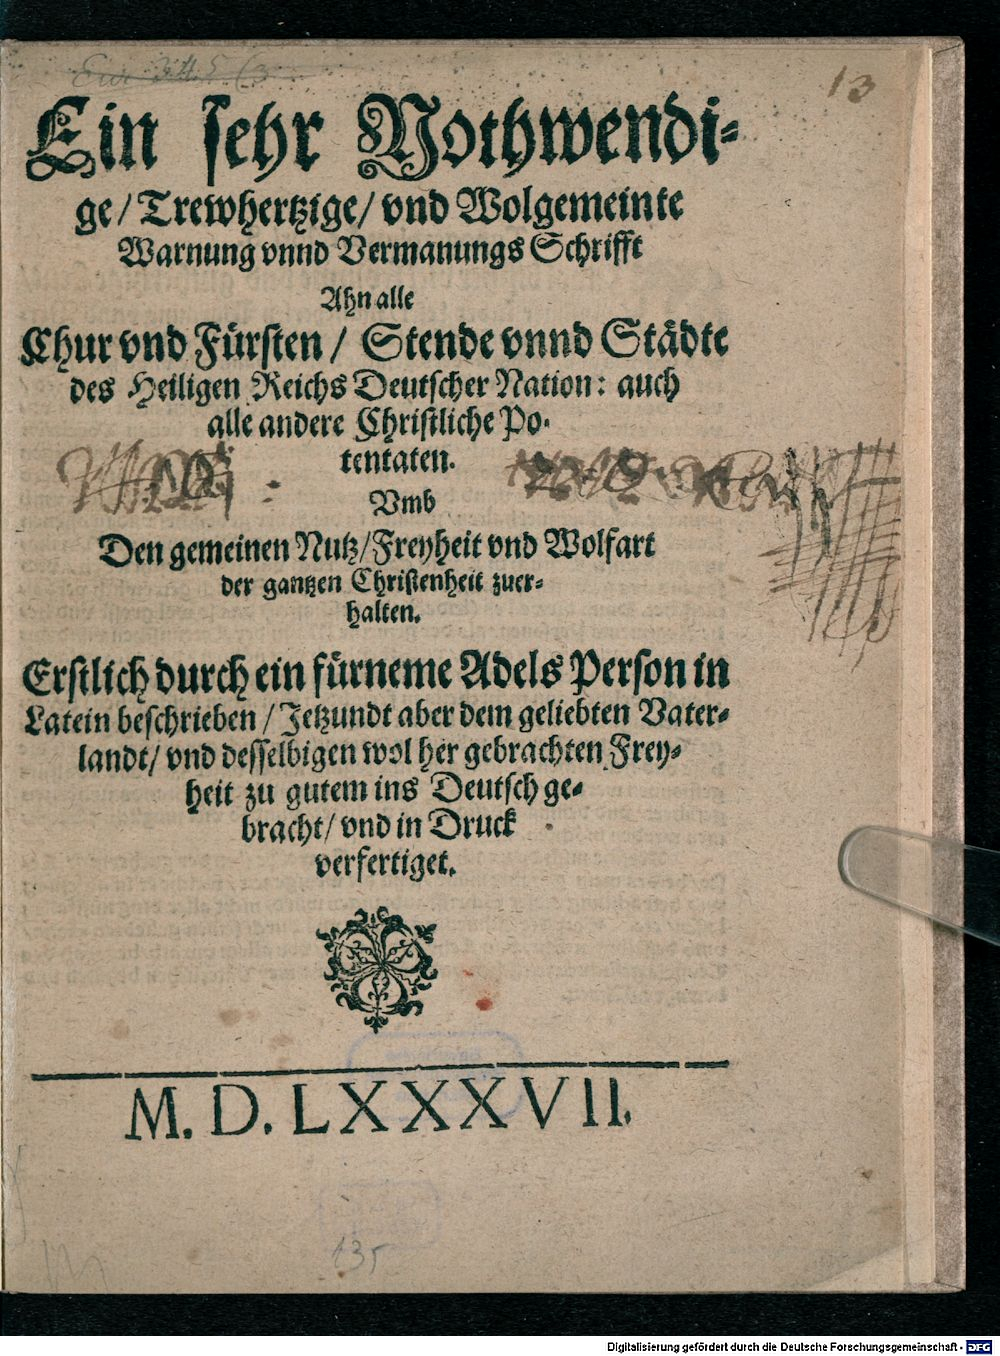 Eur 344.5 (3
13
Ein sehr Nothwendi-
ge/ Trewhertzige/ vnd Wolgemeinte
Warnung vnnd Vermanungs Schrifft
Ahn alle
Chur vnd Fürsten/ Stende vnnd Städte
des Heiligen Reichs Deutscher Nation: auch
alle andere Christliche Po-
tentaten.
Vmb
Den gemeinen Nutz/Freyheit vnd Wolfart
der gantzen Christenheit zuer-
halten.
Erstlich durch ein fürneme Adels Person in
Latein beschrieben/ Jetzundt aber dem geliebten Vater-
landt/ vnd desselbigen wol her gebrachten Frey-
heit zu gutem ins Deutsch ge-
bracht/ vnd in Druck
verfertiget.
M. D. LXXXVII.
135
Digitalisierung gefördert durch die Deutsche Forschungsgemeinschaft - DFG